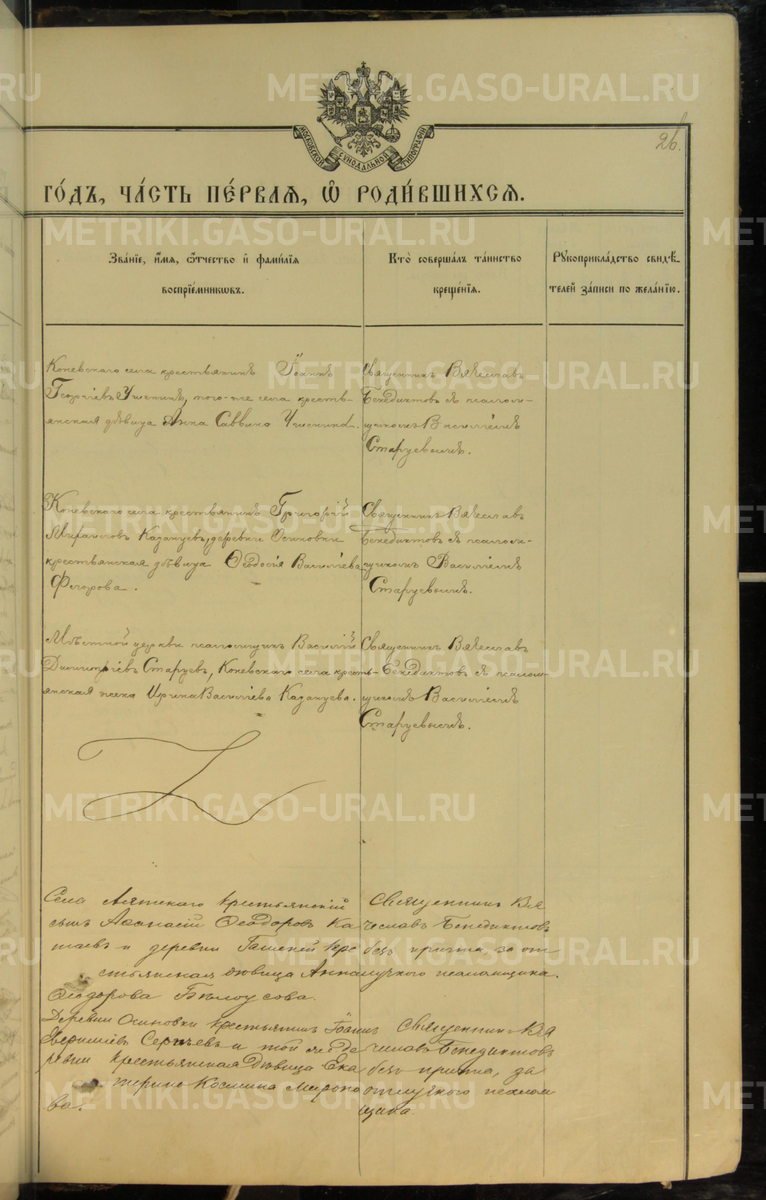 METRIKI.GASO-URAL.RU
МОСКОВСКОЙ СѴНОДАЛЬНОЙ ТИПОГРАФІИ
26.
ГО́ДЪ, ЧА́СТЬ ПЕ́РВАЯ, Ѿ РОДИ́ВШИХСЯ.
Зва́нїе, и́мя, ѻ́тчество и҆ фами́лїя
воспрїе́мниковъ.
Кто̀ соверша́лъ та́инство
креще́нїя.
Рꙋкоприкла́дство свидѣ́-
телей за́писи по жела́нїю.
Коневскаго села крестьянинъ Іоаннъ
Георгіевъ того-же села кресть-
янская дѣвица Анна Саввина
Священникъ Вячеславъ
Бенедиктовъ съ псалом-
щикомъ Василіемъ
Старцевымъ.
Коневскаго села крестьянинъ Григорій
Казанцевъ, деревни Осиновки
крестьянская дѣвица Ѳеодосія Василіева
Федорова.
Священникъ Вячеславъ
Бенедиктовъ съ псалом-
щикомъ Василіемъ
Старцевымъ.
Мѣстной церкви псаломщикъ Василій
Димитріевъ Старцевъ, Коневскаго села кресть-
янская жена Ирина Василіева Казанцева.
Священникъ Вячеславъ
Бенедиктовъ съ псалом-
щикомъ Василіемъ
Старцевымъ.
Села Аятскаго крестьянскій
сынъ Аѳанасій Ѳеодоровъ Ка
таевъ и деревни кре
стьянская дѣвица Анна
Ѳеодорова Бѣлоусова.
Священникъ Вя
чеславъ Бенедиктовъ
безъ причта, за от
лучкою псаломщика.
Деревни Осиновки крестьянинъ Іоаннъ
Сергѣевъ и той же де
ревни крестьянская дѣвица Ека
терина Космина Мироно
ва.
Священникъ Вя
чеславъ Бенедиктовъ
безъ причта, за
отлучкою псалом
щика.